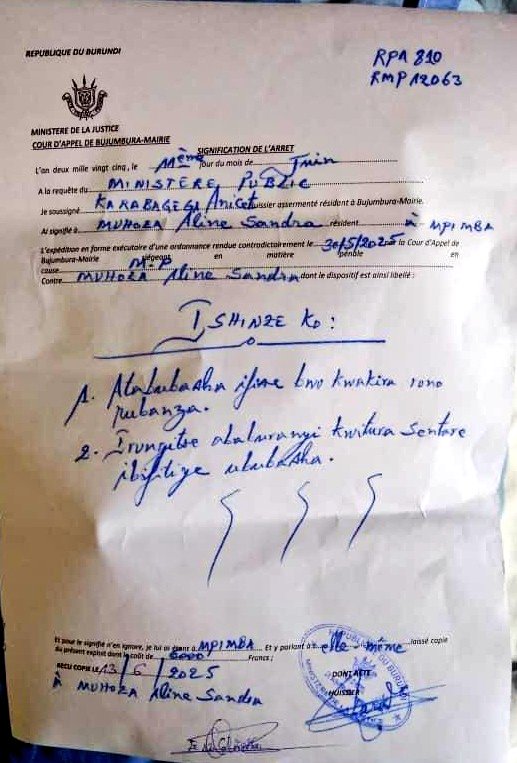 REPUBLIQUE DU BURUNDI
RPA 810
RMP 12063
MINISTERE DE LA JUSTICE
COUR D'APPEL DE BUJUMBURA-MAIRIE
SIGNIFICATION DE L'ARRET
L'an deux mille vingt cinq, le 11ème jour du mois de Juin
A la requête du MINISTERE PUBLIC
Je soussigné KARABAGEGA Anicet huissier assermenté résident à Bujumbura-Mairie.
Ai signifié à MUHOZA Aline Sandra résident à MPIMBA
L'expédition en forme exécutoire d'une ordonnance rendue contradictoirement le 30/5/2025 la Cour d'Appel de
Bujumbura-Mairie siégeant en matière pénble en
cause M.P
Contre MUHOZA Aline Sandra dont le dispositif est ainsi libellé :
ISHINZE KO :
1. Ata bubasha ifise bwo kwakira rono
rubanza.
2. Irungitse ababuranyi kwitura Sentare
ibifitiye ububasha.
Et pour le signifié n'en ignore, je lui ai étant à MPIMBA Et y parlant à elle-même laissé copie
du présent exploit dont le coût de 6000 Francs ;
RECU COPIE LE 13/6/2025
DONT ACTE
à MUHOZA Aline Sandra
HUISSIER
REPUBLIQUE DU BURUNDI